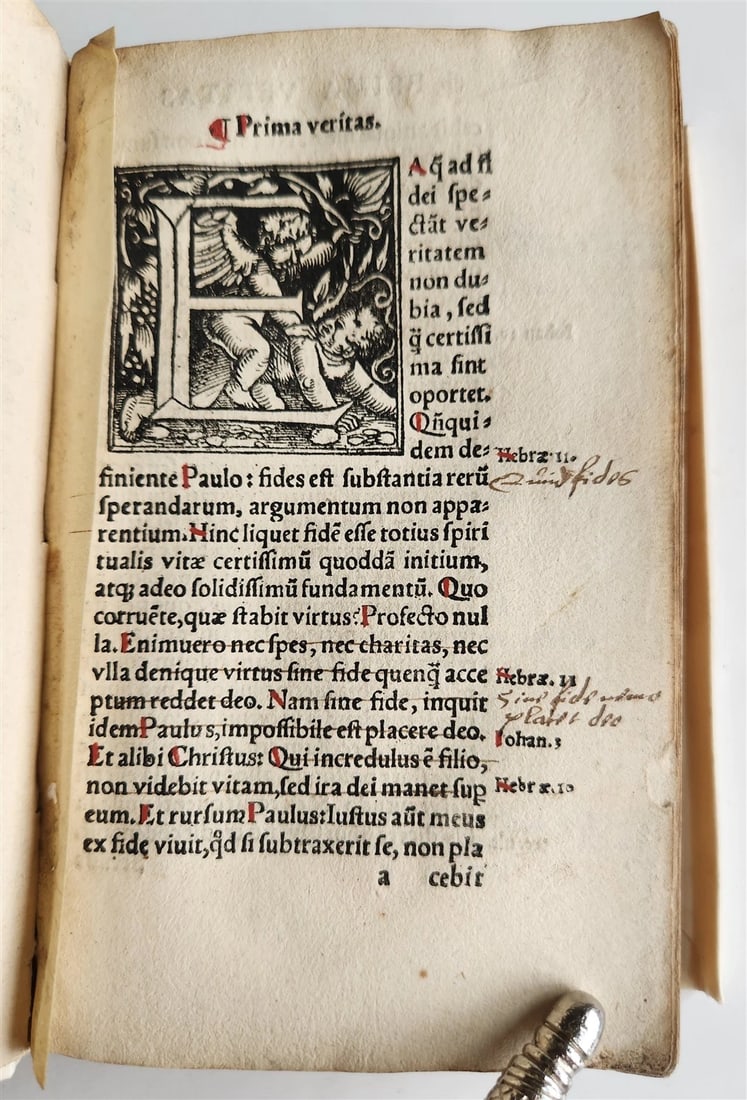 ¶ Prima veritas.
EA q̃ ad fi
dei spe⸗
ctāt ve⸗
ritatem
non du⸗
bia, sed
q̃ certissi
ma sint
oportet.
Qñqui⸗
dem de⸗
Hebræ. 11.
finiente Paulo: fides est substantia rerū
fides
sperandarum, argumentum non appa⸗
rentium. Hinc liquet fidē esse totius spiri
tualis vitæ certissimū quoddā initium,
atq; adeo solidissimū fundamentū. Quo
corruēte, quæ stabit virtus? Profecto nul
la. Enimuero nec spes, nec charitas, nec
vlla denique virtus sine fide quenq̃ acce
Hebræ. 11
ptum reddet deo. Nam sine fide, inquit
sine fide nemo
placet deo
idem Paulus, impossibile est placere deo.
Iohan. 3
Et alibi Christus: Qui incredulus ē filio,
non videbit vitam, sed ira dei manet sup
Hebræ. 10
eum. Et rursum Paulus: Iustus aūt meus
ex fide viuit, qd si subtraxerit se, non pla
a cebit